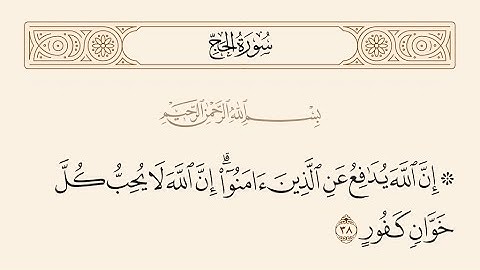 سُورَةُ الحَجِّ
بِسْمِ ٱللَّهِ ٱلرَّحْمَٰنِ ٱلرَّحِيمِ
۞ إِنَّ ٱللَّهَ يُدَٰفِعُ عَنِ ٱلَّذِينَ ءَامَنُوٓا۟ ۗ إِنَّ ٱللَّهَ لَا يُحِبُّ كُلَّ
خَوَّانٍ كَفُورٍ ٣٨